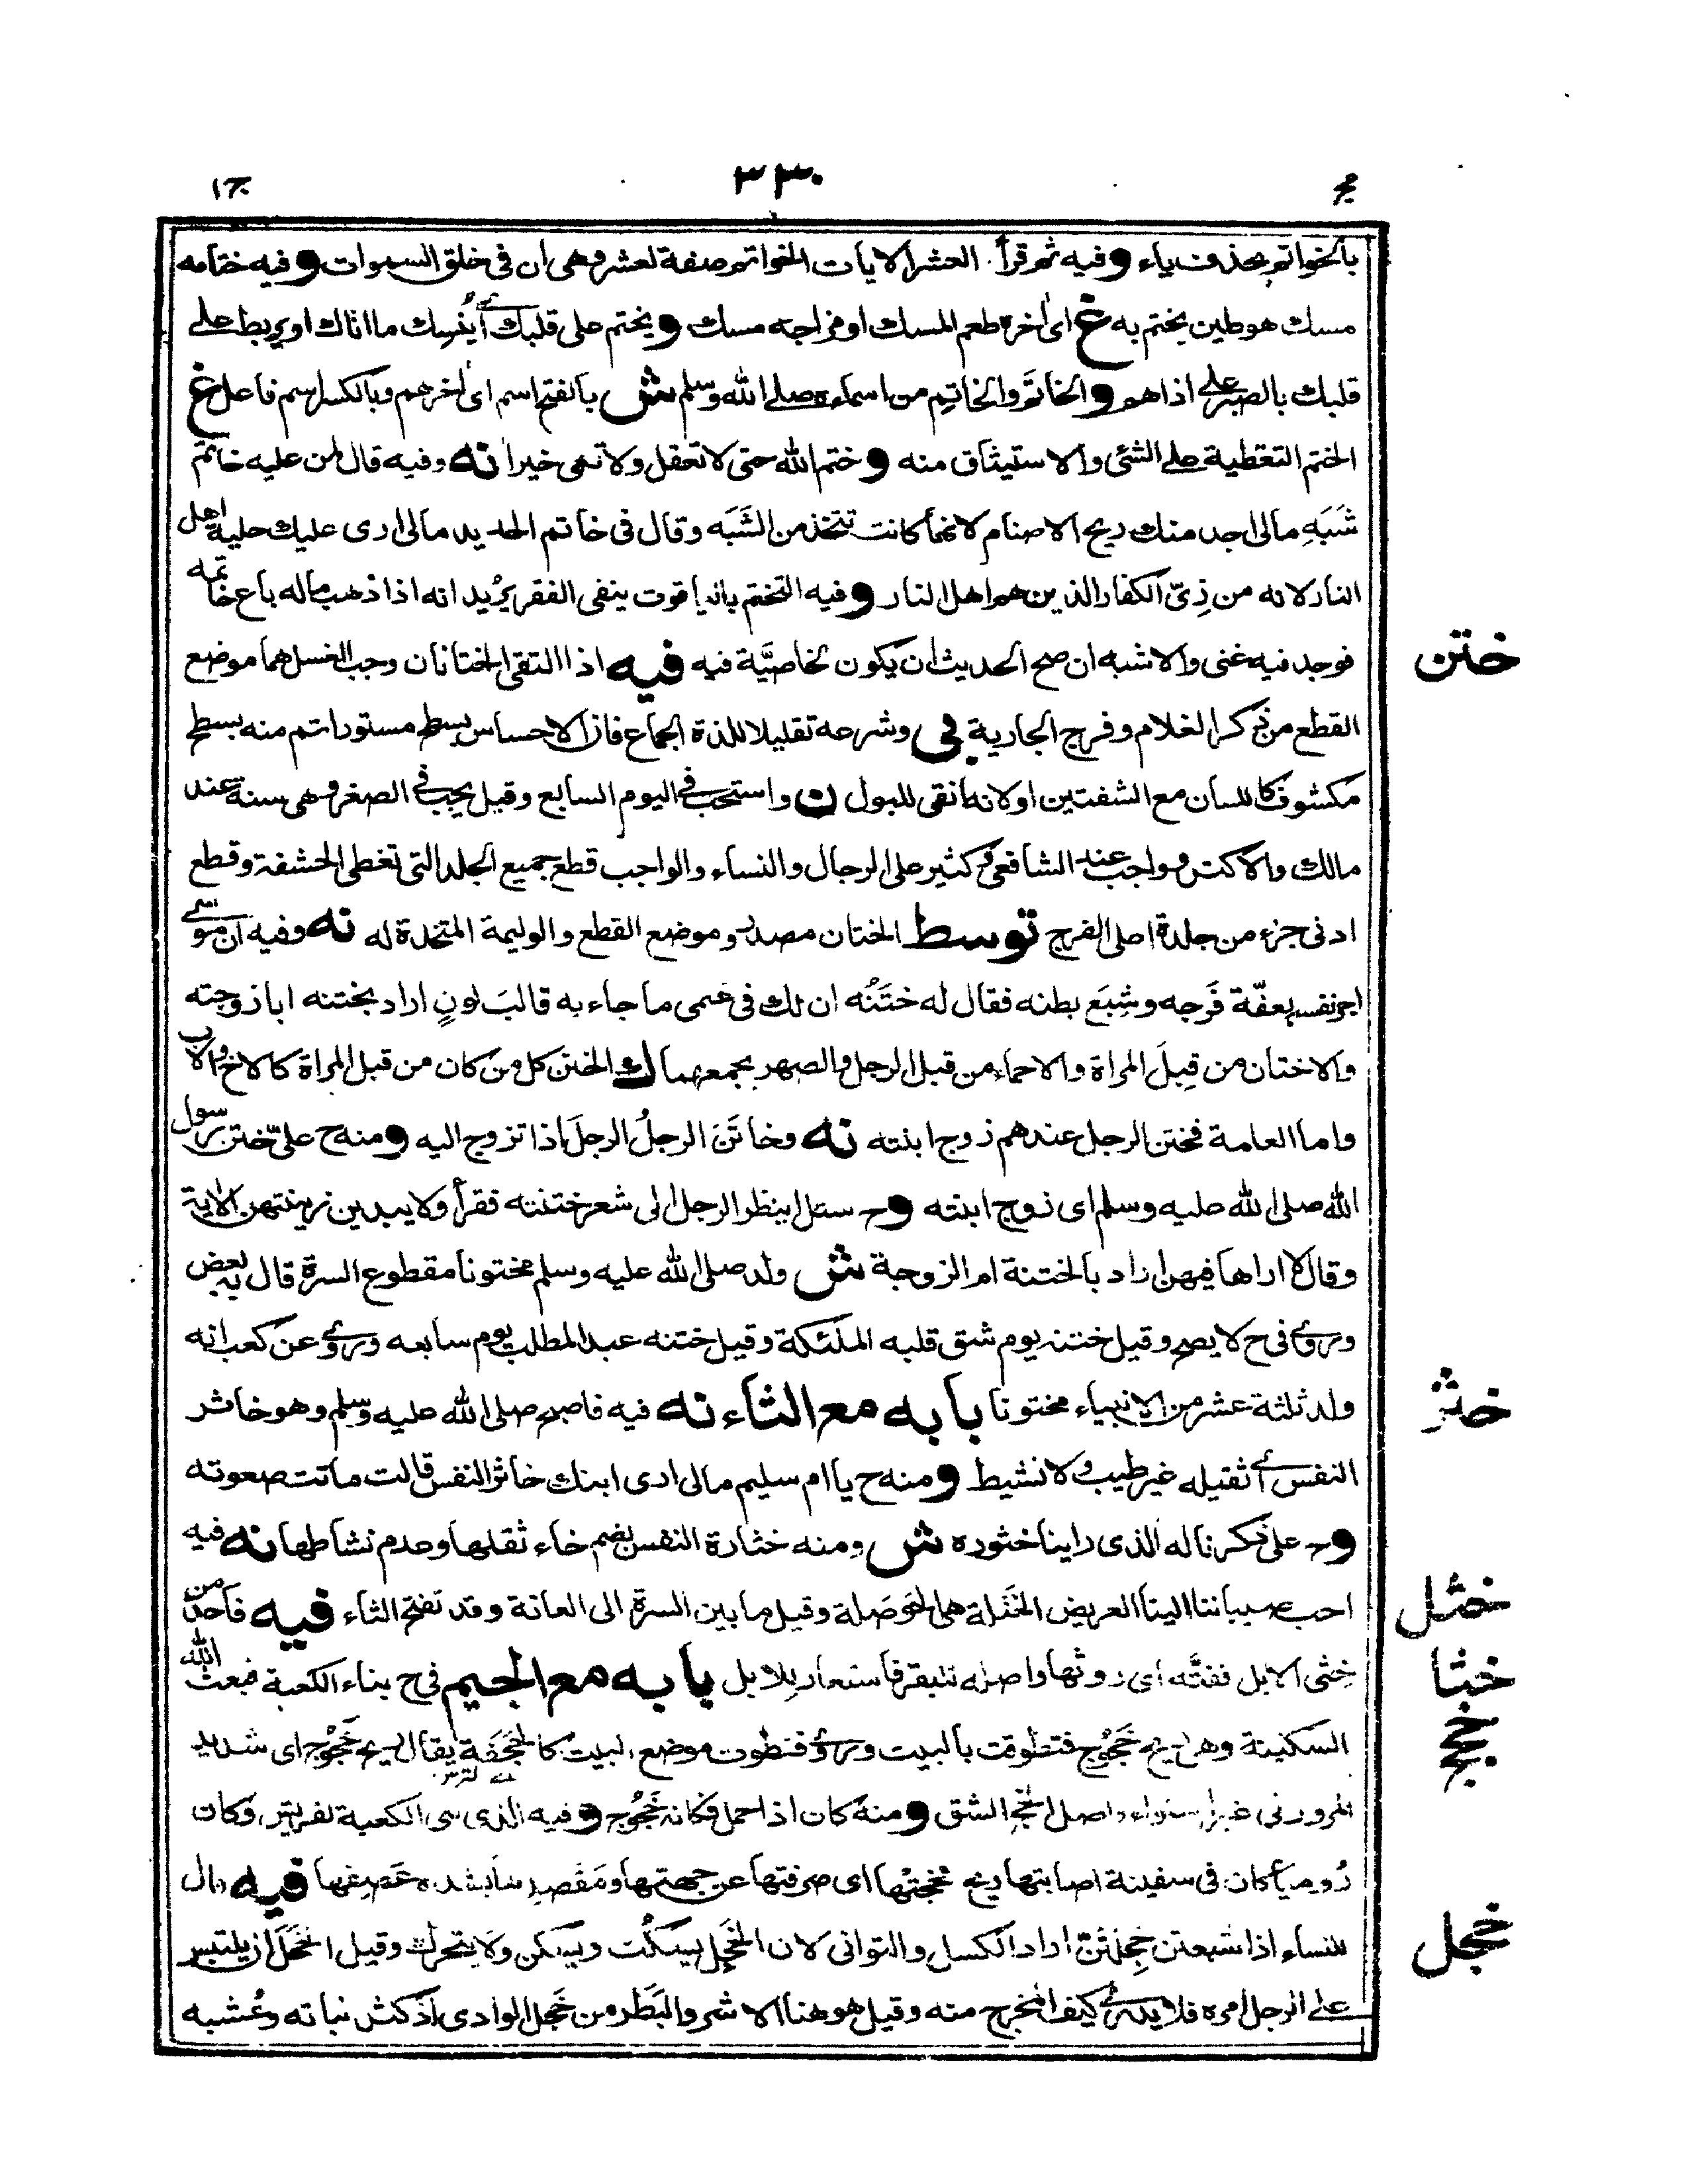 خج
٣٣٠
ج١
بالخواتم بحذف ياء وفيه ثم قرأ العشر الايات الخواتم صفة لعشر وهى ان فى خلق السموات وفيه ختامه
مسك هو طين يختم به غ اى اخره طعم المسك او مزاجه مسك ويختم على قلبك اى ينسك ما اتاك او يربط على
قلبك بالصبر على اذاهم والخاتَم والخاتِم من اسمائه صلى الله وسلم ش بالفتح اسم اى اخرهم وبالكسر اسم فاعل غ
الختم التغطية على الشئ والاستيثاق منه وختم الله حتى لا تعقل ولا تعى خيرا نه وفيه قال لمن عليه خاتم
شَبَهٍ مالى اجد منك ريح الاصنام لانها كانت تتخذ من الشَبَه وقال فى خاتم الحديد مالى ارى عليك حلية اهل
النار لانه من زِىّ الكفار الذين هم اهل النار وفيه التختم بالياقوت ينفى الفقر يُريد انه اذا ذهب ماله باع خاتمه
فوجد فيه غنى والاشبه ان صح الحديث ان يكون لخاصيَّة فيه فيه اذا التقى الختانان وجب الغسل هما موضع
ختن
القطع من ذكر الغلام وفرج الجارية بى وشرحه تقليلا للذة الجماع فان الاحساس بسطح مستور اتم منه بسطح
مكشوف كاللسان مع الشفتين او لانه انقى للبول ن واستحب فى اليوم السابع وقيل يجب فى الصغر وهى سنة عند
مالك والاكثر وواجب عند الشافعى وكثير على الرجال والنساء والواجب قطع جميع الجلد التى تغطى الحشفة وقطع
ادنى جزء من جلدة اعلى الفرج توسط الختان مصدر وموضع القطع والوليمة المتخذة له نه وفيه ان موسى
اجر نفسه بعفّة فَرجه وشِبَع بطنه فقال له ختَنُه ان لك فى غنمى ما جاء به قالبَ لونٍ اراد بختنه ابا زوجته
والاختان من قِبَل المراة والاحماء من قبل الرجل والصهر يجمعهما ك الختن كل من كان من قبل المراة كالاخ والاب
واما العامة فختن الرجل عندهم زوج ابنته نه وخاتَنَ الرجلُ الرجلَ اذا تزوج اليه ومنه ح علىّ ختن رسول
الله صلى الله عليه وسلم اى زوج ابنته وح سئل اينظر الرجل الى شعر ختنته فقرأ ولا يبدين زينتهن الاية
وقال لا اراها فيهن اراد بالختنة ام الزوجة ش ولد صلى الله عليه وسلم مختونا مقطوع السرة قال به بعض
وروى فى ح لا يصح وقيل ختنه يوم شق قلبه الملئكة وقيل ختنه عبد المطلب يوم سابعه وروى عن كعب انه
ولد ثلثة عشر من الانبياء مختونا بابه مع الثاء نه فيه فاصبح صلى الله عليه وسلم وهو خاثر
خثر
النفس اى ثقيله غير طيب ولا نشيط ومنه ح يا ام سليم مالى ارى ابنك خاثر النفس قالت ماتت صعوته
وح على ذكرنا له الذى راينا خثوره ش ومنه خثارة النفس بضم خاء ثقلها وعدم نشاطها نه فيه
احب صبياننا الينا العريض الخَثلة هى الحَوصَلة وقيل ما بين السرة الى العانة وقد تفتح الثاء فيه فاخذ من
خثل
خِثى الابل ففتَّه اى روثها واصله للبقر فاستعار للابل بابه مع الجيم فى ح بناء الكعبة فبعث الله
خثا
السكينة وهى ريح خَجُوج فتطوقت بالبيت وروى فتطوت موضع البيت كالحَجَفَة يقال ريح خَجُوج اى شديد
خجج
المرور فى غير استواء واصل الخج الشق ومنه كان اذا حمل فكانه خَجُوج وفيه الذى بنى الكعبة لقريش وكان
رُوميا كان فى سفينة اصابتها ريح فخجتْها اى صرفتها عن جهتها ومَقصدها بشدة عَصفها فيه قال
للنساء اذا شبعتن خَجِلتُنّ اراد الكسل والتوانى لان الخَجِل يسكت ويسكن ولا يتحرك وقيل الخَجَل ان يلتبس
خجل
على الرجل امره فلا يدرى كيف المخرج منه وقيل هو هنا الاشر والبَطَر من خَجِل الوادى اذا كثر نباته وعُشبه